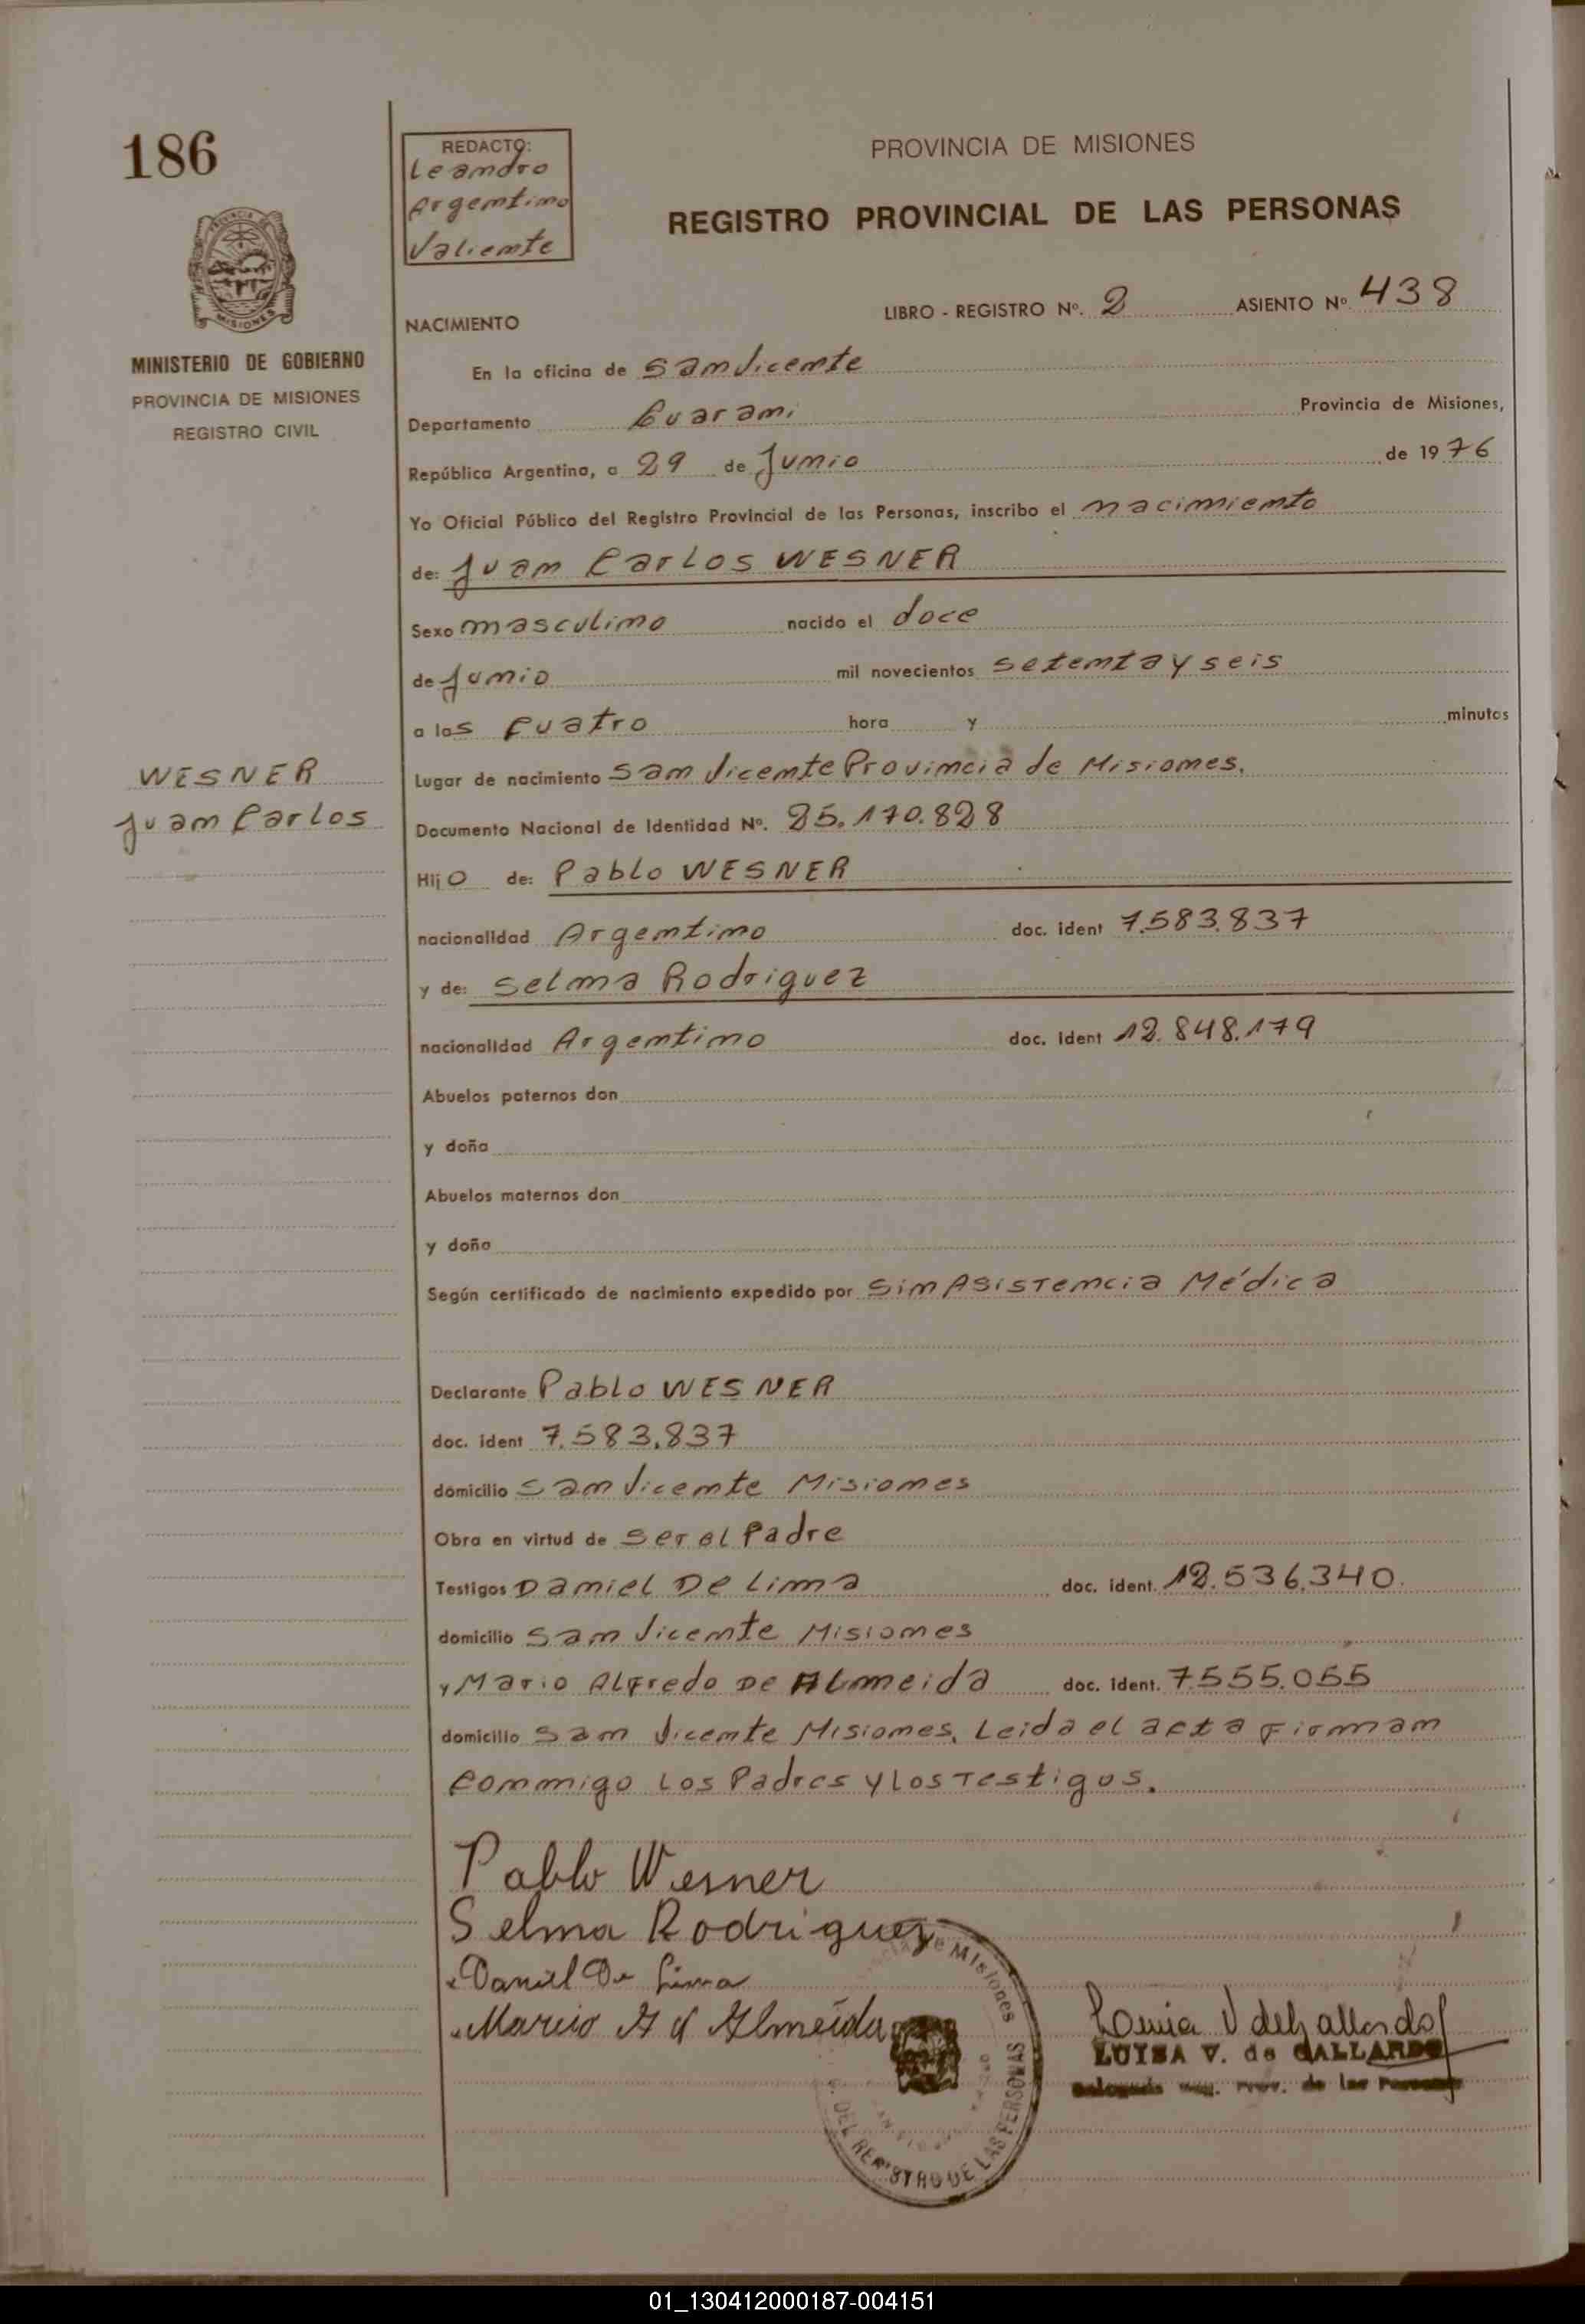 186
REDACTO:
Leandro
Argentino
Valiente
PROVINCIA DE MISIONES
REGISTRO PROVINCIAL DE LAS PERSONAS
MISIONES
MINISTERIO DE GOBIERNO
PROVINCIA DE MISIONES
REGISTRO CIVIL
NACIMIENTO
LIBRO - REGISTRO Nº. 2 ASIENTO Nº 438
En la oficina de San Vicente
Departamento Guarani Provincia de Misiones,
República Argentina, a 29 de Junio de 1976
Yo Oficial Público del Registro Provincial de las Personas, inscribo el nacimiento
de: Juan Carlos WESNER
Sexo masculino nacido el doce
de Junio mil novecientos setenta y seis
a las cuatro hora y minutos
WESNER
Juan Carlos
Lugar de nacimiento San Vicente Provincia de Misiones.
Documento Nacional de Identidad Nº. 25.170.828
Hijo de: Pablo WESNER
nacionalidad Argentino doc. ident 7.583.837
y de: Selma Rodriguez
nacionalidad Argentino doc. ident 12.848.179
Abuelos paternos don
y doña
Abuelos maternos don
y doña
Según certificado de nacimiento expedido por Sin Asistencia Médica
Declarante Pablo WESNER
doc. ident 7.583.837
domicilio San Vicente Misiones
Obra en virtud de ser el Padre
Testigos Daniel De Lima doc. ident. 12.536.340.
domicilio San Vicente Misiones
y Mario Alfredo De Almeida doc. ident. 7.555.055
domicilio San Vicente Misiones. Leida el acta Firman
conmigo los Padres y los Testigos.
Pablo Wesner
Selma Rodriguez
Daniel De Lima
Mario A d Almeida
Misiones
DEL REGISTRO DE LAS PERSONAS
Luisa V de Gallardo
LUISA V. de GALLARDO
Delegada Reg. Prov. de las Personas
01_130412000187-004151